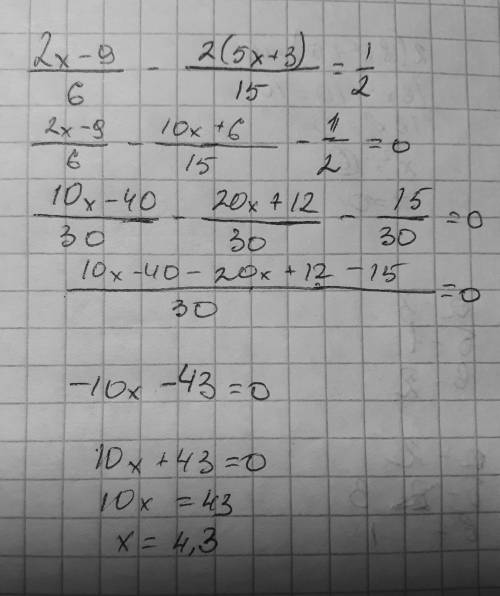 (2x-9)/6 - 2(5x+3)/15 = 1/2
(2x-9)/6 - (10x+6)/15 - 1/2 = 0
(10x-40)/30 - (20x+12)/30 - 15/30 = 0
(10x-40-20x+12-15)/30 = 0
-10x-43=0
10x+43=0
10x=43
x=4,3